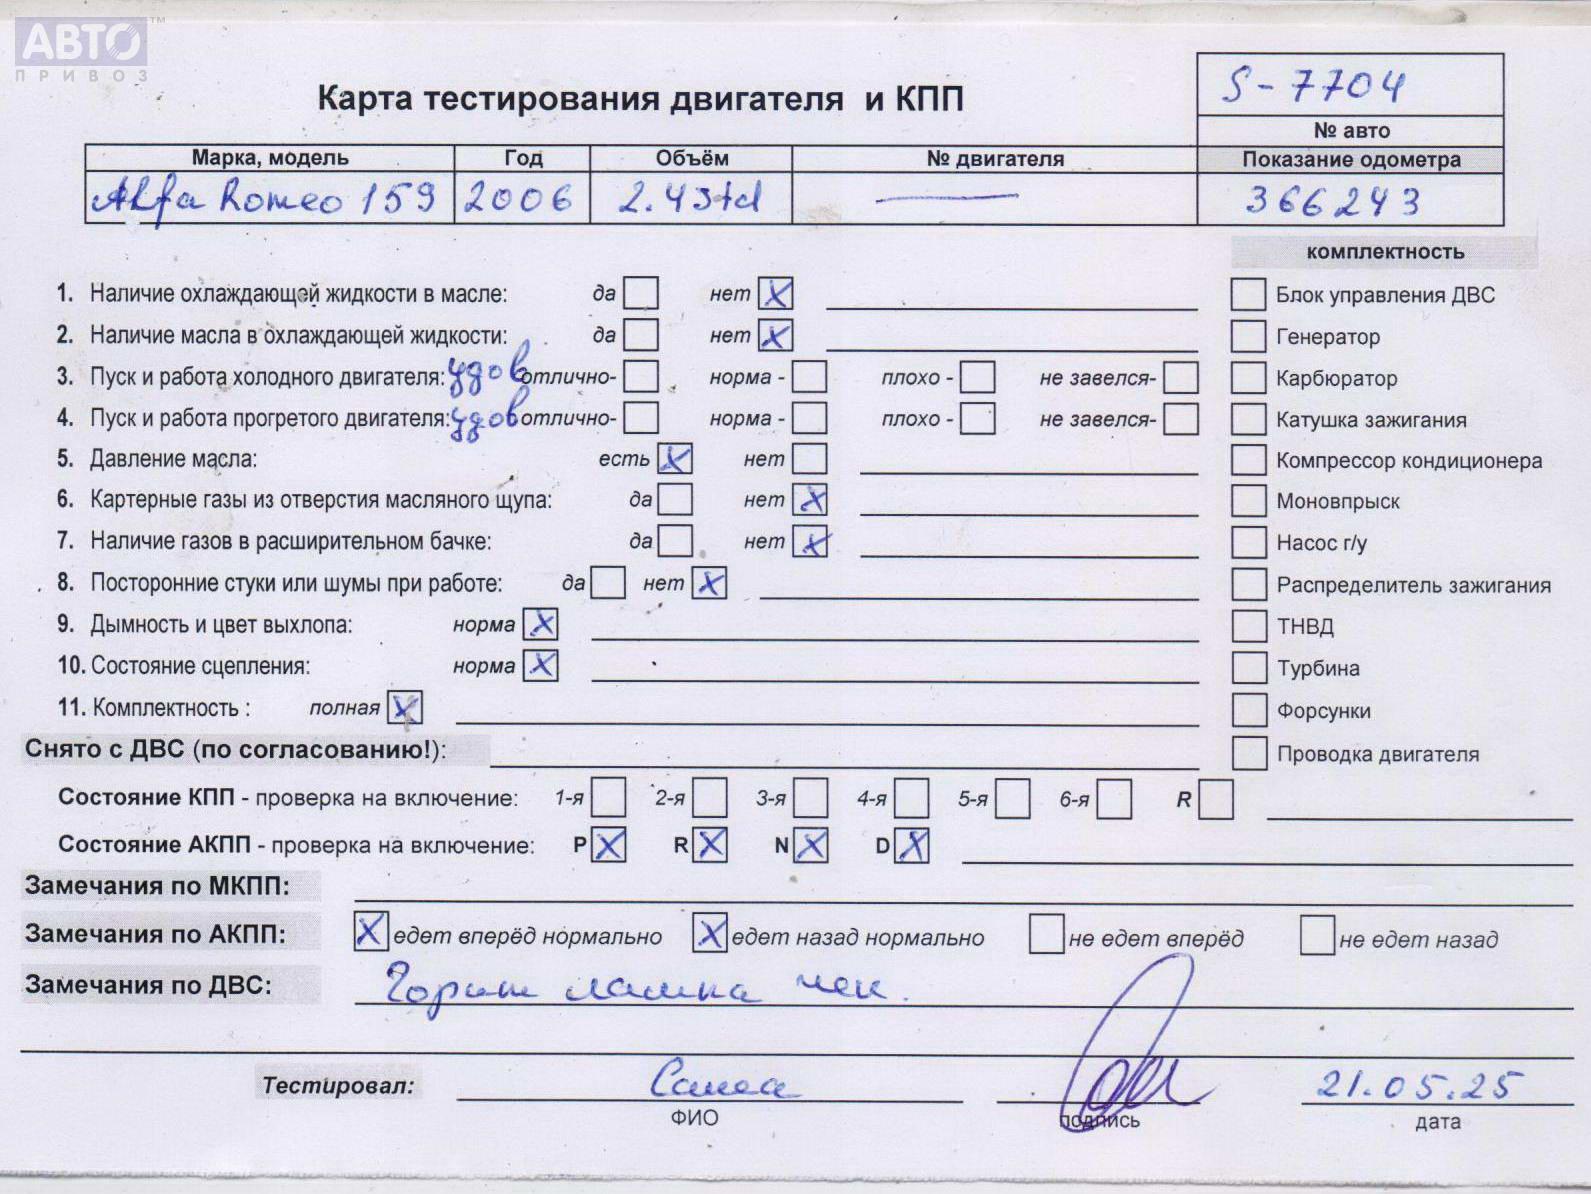 АВТО™
ПРИВОЗ
Карта тестирования двигателя и КПП
S-7704
№ авто
Марка, модель Год Объём № двигателя Показание одометра
Alfa Romeo 159 2006 2.4Jtd — 366243
комплектность
1. Наличие охлаждающей жидкости в масле: да нет X Блок управления ДВС
2. Наличие масла в охлаждающей жидкости: да нет X Генератор
3. Пуск и работа холодного двигателя: удов отлично- норма - плохо - не завелся- Карбюратор
4. Пуск и работа прогретого двигателя: удов отлично- норма - плохо - не завелся- Катушка зажигания
5. Давление масла: есть X нет Компрессор кондиционера
6. Картерные газы из отверстия масляного щупа: да нет X Моновпрыск
7. Наличие газов в расширительном бачке: да нет X Насос г/у
8. Посторонние стуки или шумы при работе: да нет X Распределитель зажигания
9. Дымность и цвет выхлопа: норма X ТНВД
10. Состояние сцепления: норма X Турбина
11. Комплектность : полная X Форсунки
Снято с ДВС (по согласованию!): Проводка двигателя
Состояние КПП - проверка на включение: 1-я 2-я 3-я 4-я 5-я 6-я R
Состояние АКПП - проверка на включение: P X R X N X D X
Замечания по МКПП:
Замечания по АКПП: X едет вперёд нормально X едет назад нормально не едет вперёд не едет назад
Замечания по ДВС: Горит лампа чек.
Тестировал: Саша 21.05.25
ФИО подпись дата